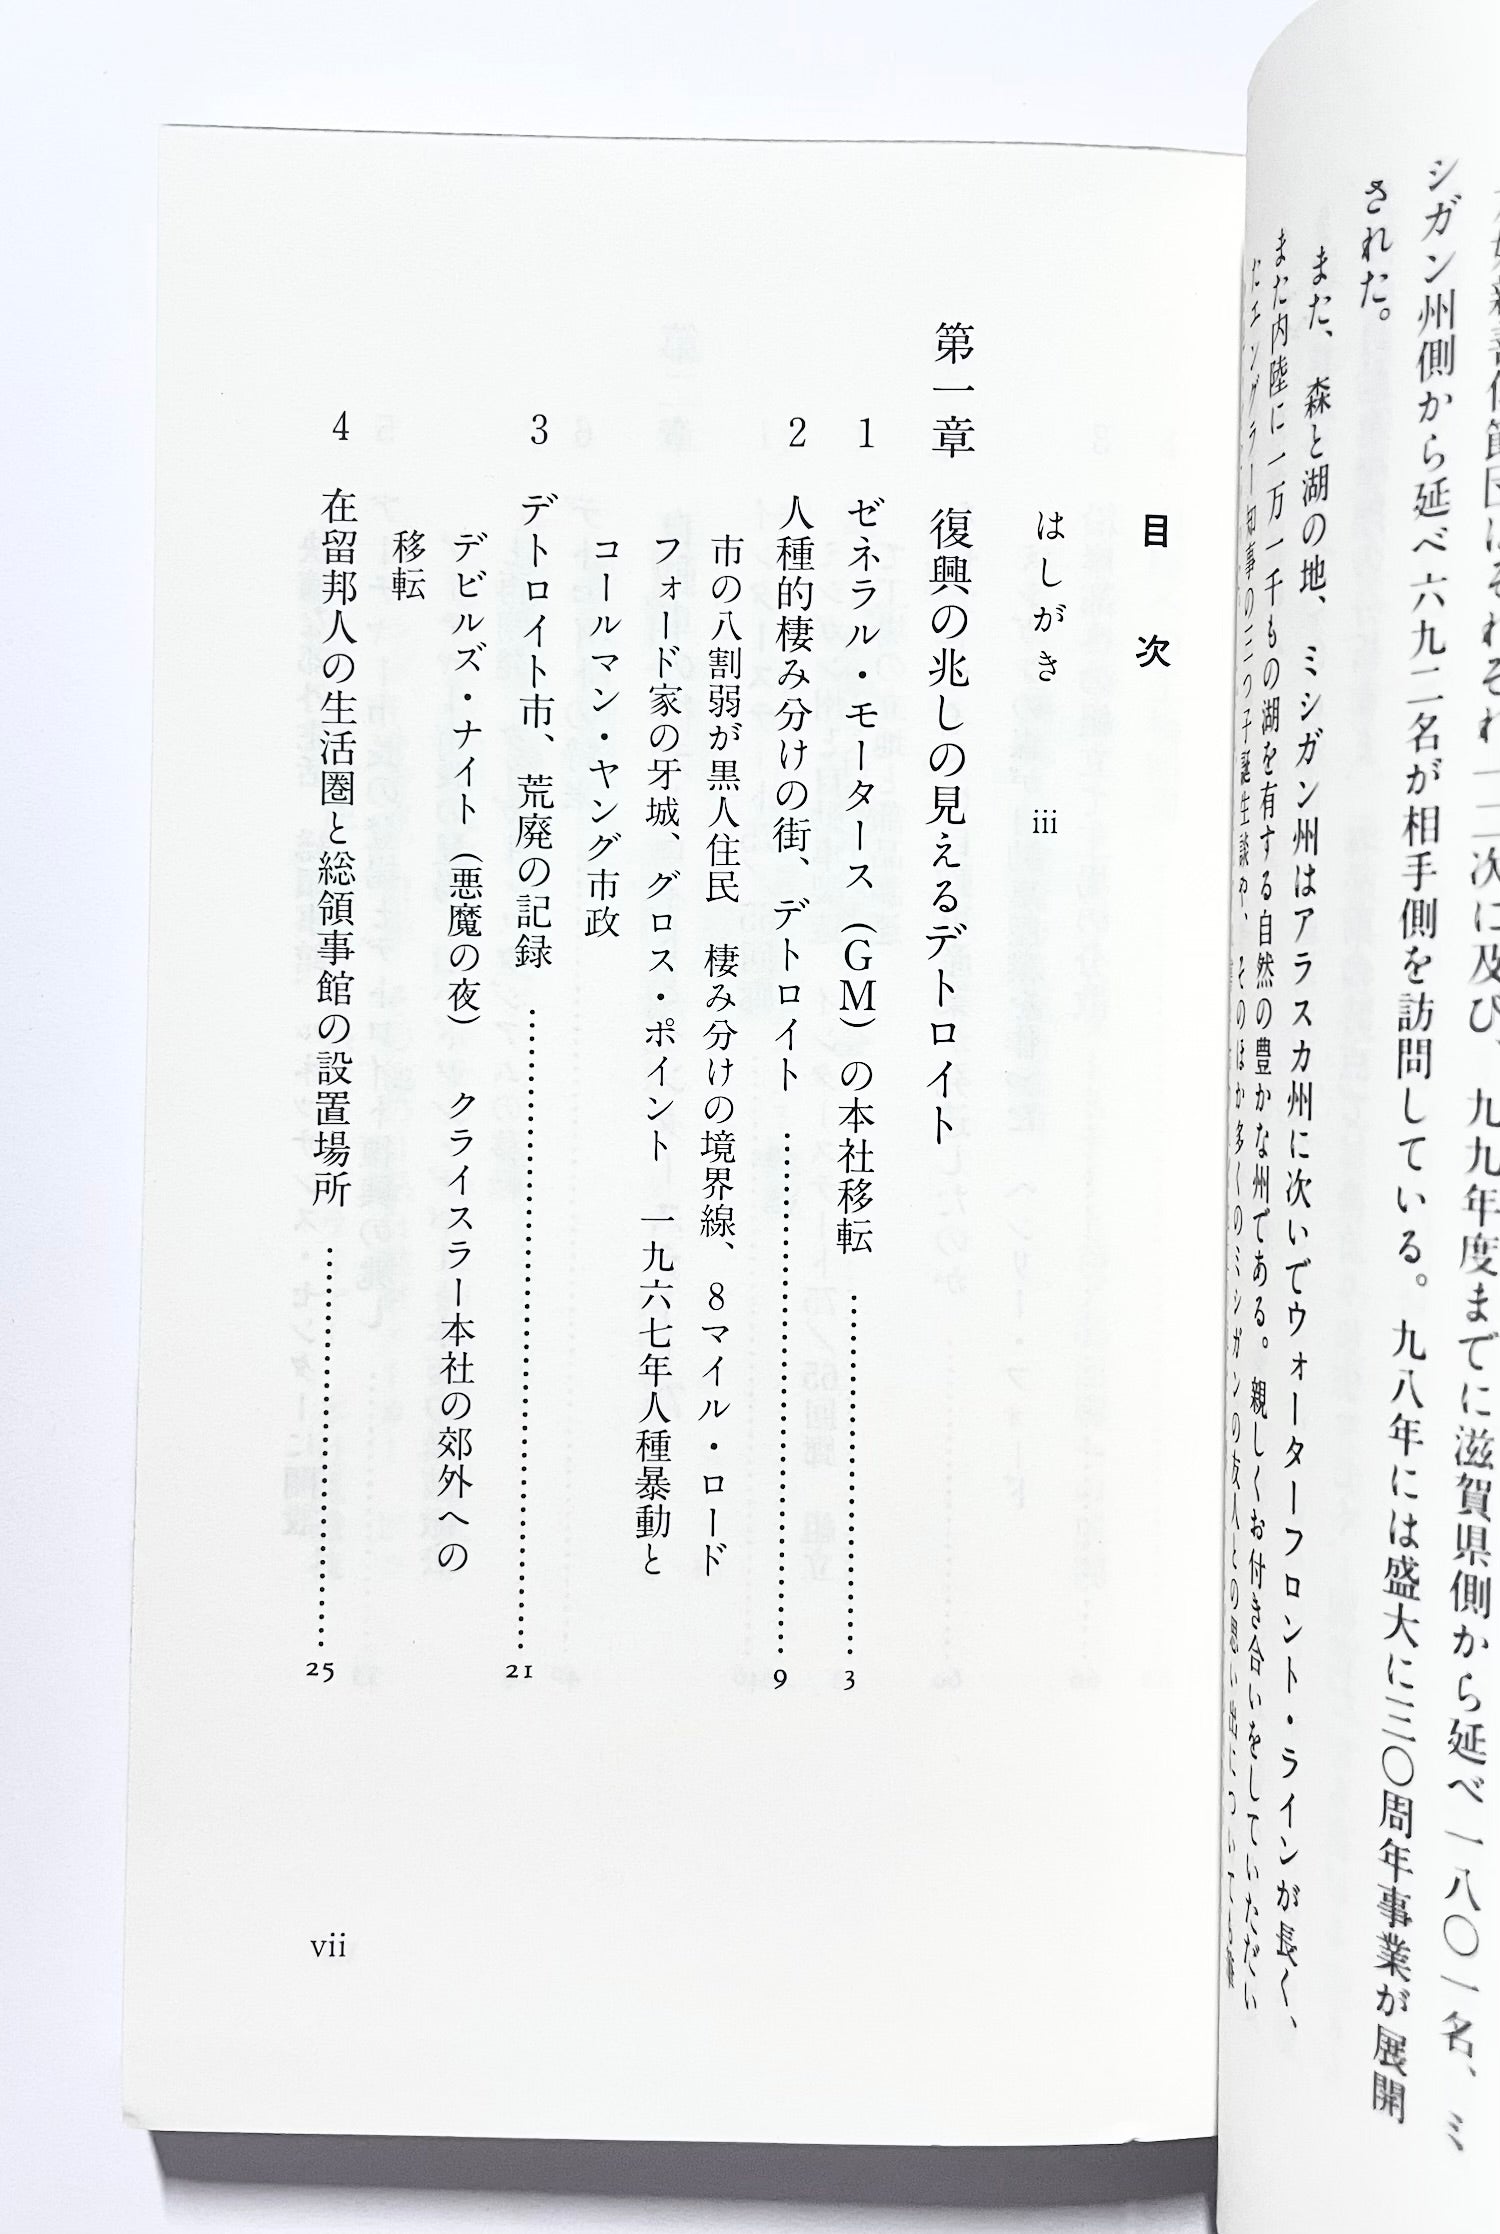 シガン州側から延べ六九二名が相手側を訪問している。九八年には盛大に三〇周年事業が展開
された。
また、森と湖の地、ミシガン州はアラスカ州に次いでウォーターフロント・ラインが長く、
また内陸に一万一千もの湖を有する自然の豊かな州である。親しくお付き合いをしていただい
たエングラー知事の三つ子誕生談や、そのほか多くのミシガンの友人との思い出についても
目次
はしがき iii
第一章 復興の兆しの見えるデトロイト
1 ゼネラル・モータース(GM)の本社移転 …… 3
2 人種的棲み分けの街、デトロイト …… 9
市の八割弱が黒人住民 棲み分けの境界線、8マイル・ロード
フォード家の牙城、グロス・ポイント 一九六七年人種暴動と
コールマン・ヤング市政
3 デトロイト市、荒廃の記録 …… 21
デビルズ・ナイト(悪魔の夜) クライスラー本社の郊外への
移転
4 在留邦人の生活圏と総領事館の設置場所 …… 25
vii